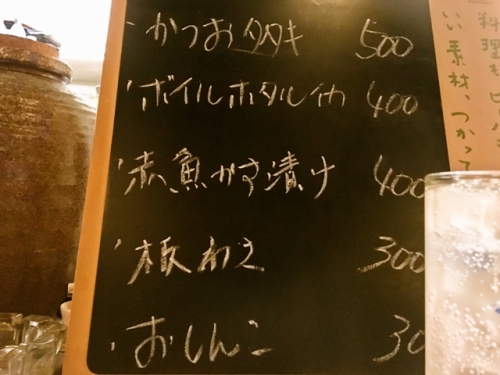 ・かつおタタキ 500
・ボイルホタルイカ 400
・赤魚かす漬け 400
・板わさ 300
・おしんこ 30
い素材、つかって